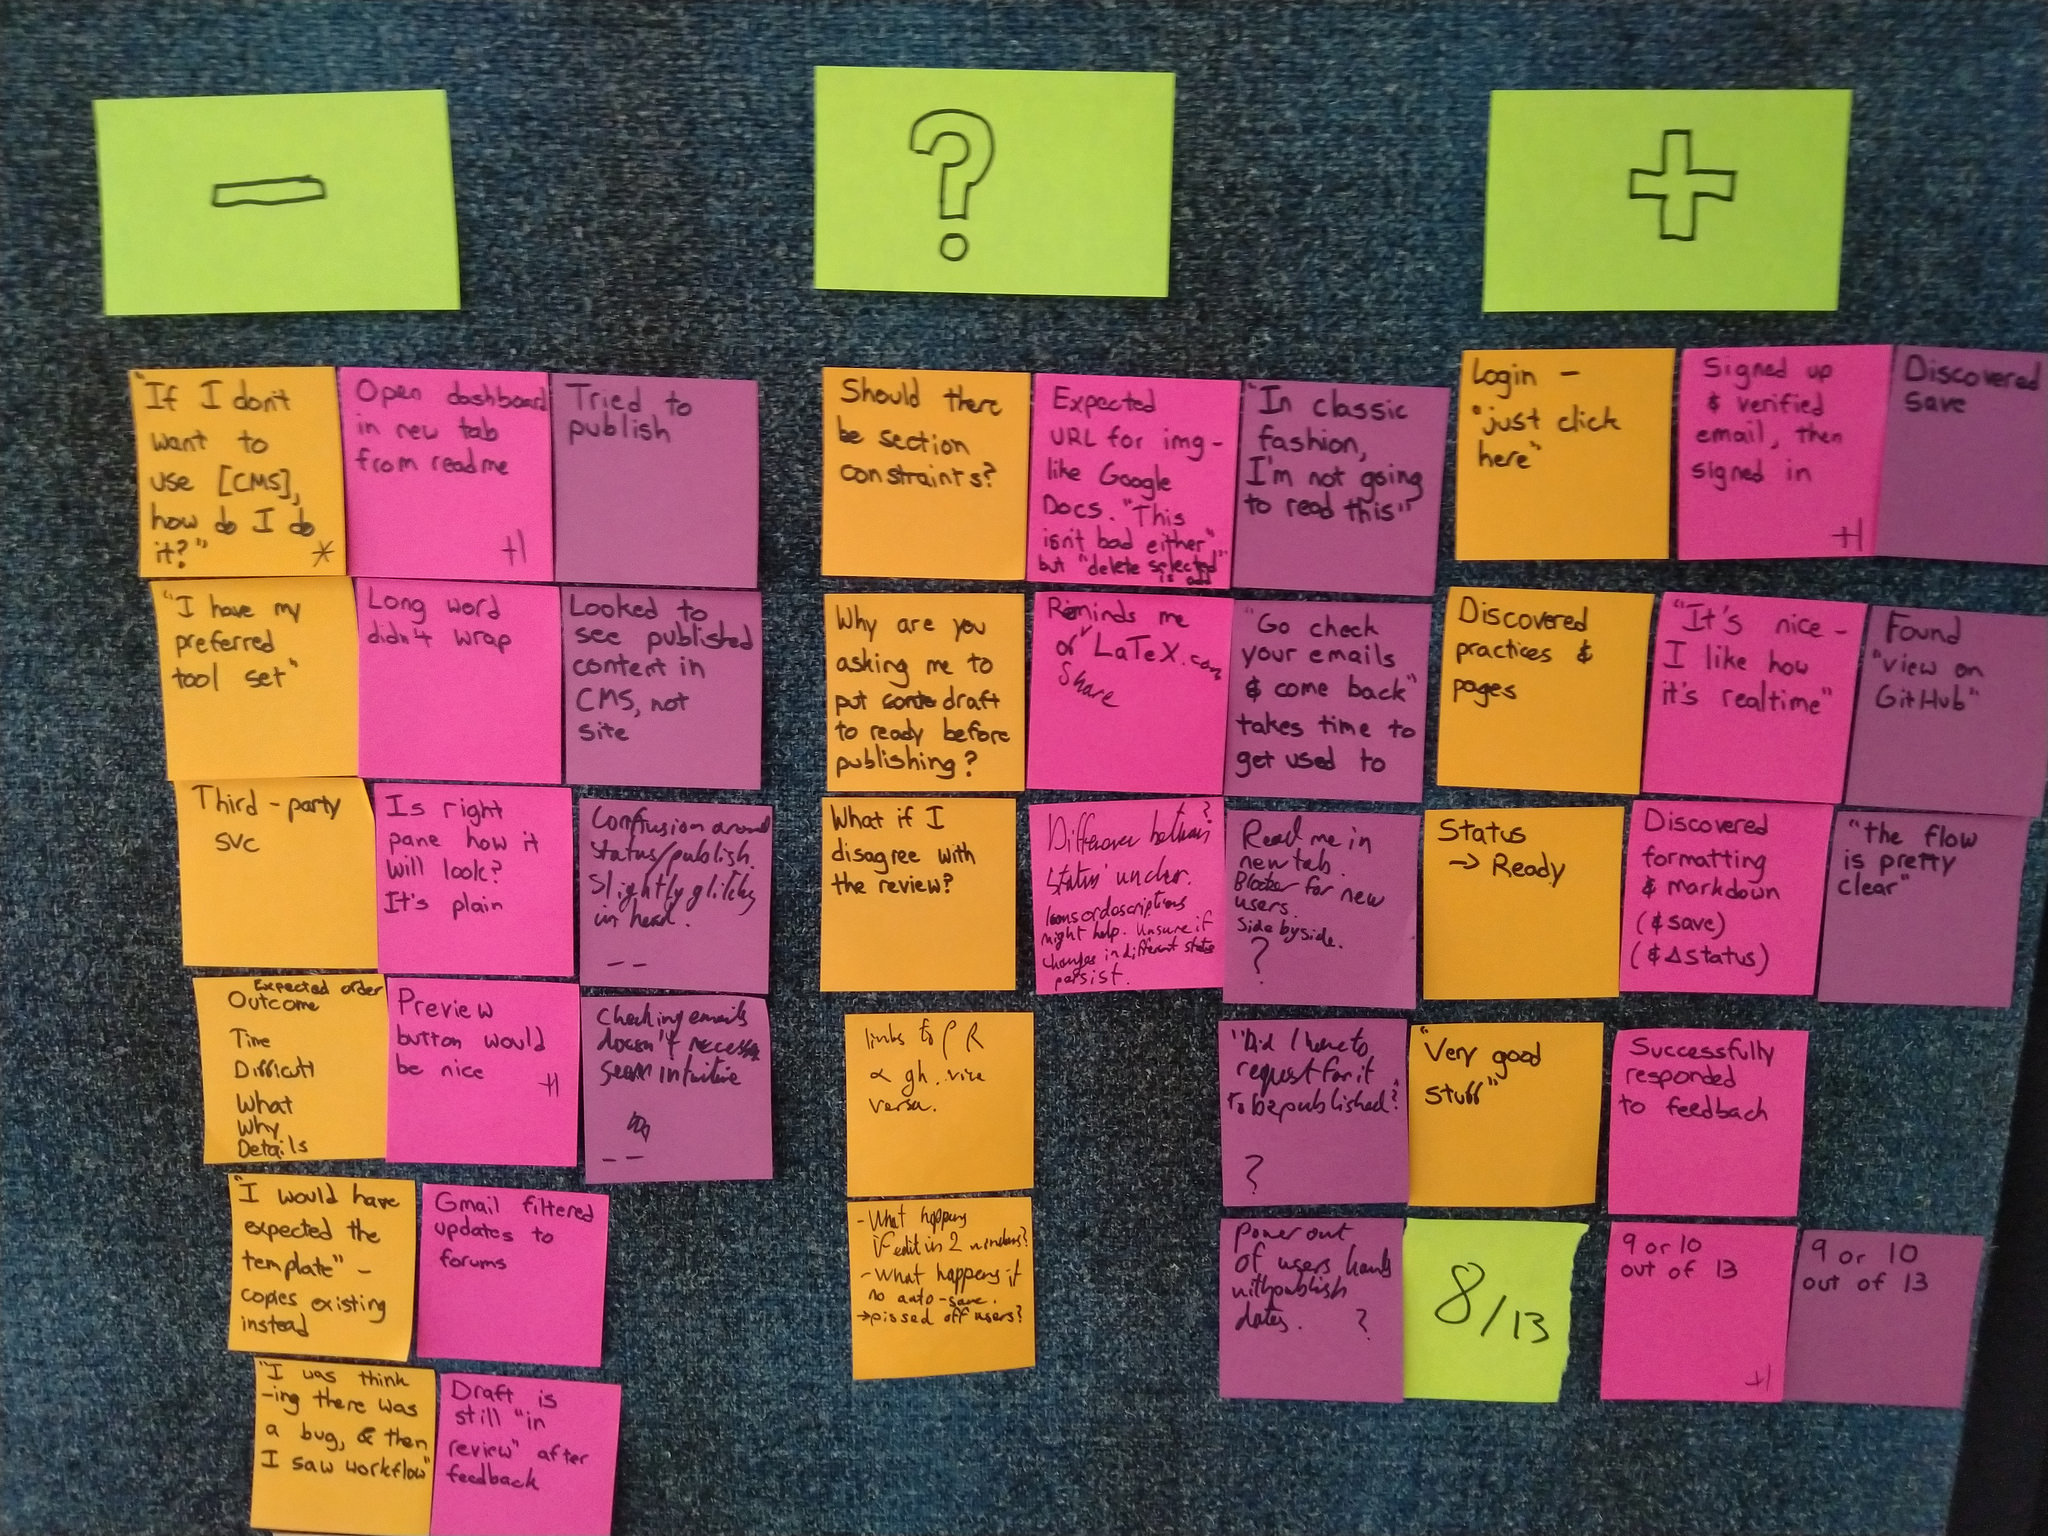 −
?
+
"If I don't
want to
use [CMS],
how do I do
it?"
*
Open dashboard
in new tab
from readme
+1
Tried to
publish
"I have my
preferred
tool set"
Long word
didn't wrap
Looked to
see published
content in
CMS, not
site
Third-party
svc
Is right
pane how it
will look?
It's plain
Confusion around
status/publish.
Slightly glitchy
in head.
– –
Expected order
Outcome
Time
Difficult
What
Why
Details
Preview
button would
be nice
+1
Checking emails
doesn't
seem intuitive
– –
"I would have
expected the
template" –
copies existing
instead
Gmail filtered
updates to
forums
"I was think
-ing there was
a bug, & then
I saw workflow"
Draft is
still "in
review" after
feedback
Should there
be section
constraints?
Expected
URL for img –
like Google
Docs. "This
isn't bad either"
but "delete selected"
is odd
"In classic
fashion,
I'm not going
to read this"
Why are you
asking me to
put draft
to ready before
publishing?
Reminds me
of LaTeX.com
Share
"Go check
your emails
& come back"
takes time to
get used to
What if I
disagree with
the review?
Difference between
status' unclear.
Icons or descriptions
might help. Unsure if
changes in different status
persist.
?
Read me in
new tab.
Blocker for new
users.
Side by side.
?
links to PR
gh. vice
versa.
"Did I have to
request for it
to be published?
?
- What happens
if edit in 2 windows?
- What happens if
no auto-save.
→ pissed off users?
Power out
of users hands
with publish
dates.
?
Login –
"just click
here"
Signed up
& verified
email, then
signed in
+1
Discovered
save
Discovered
practices &
pages
"It's nice –
I like how
it's realtime"
Found
"view on
GitHub"
Status
→ Ready
Discovered
formatting
& markdown
(& save)
(& Δ status)
"the flow
is pretty
clear"
"Very good
stuff"
Successfully
responded
to feedback
8/13
9 or 10
out of 13
+1
9 or 10
out of 13